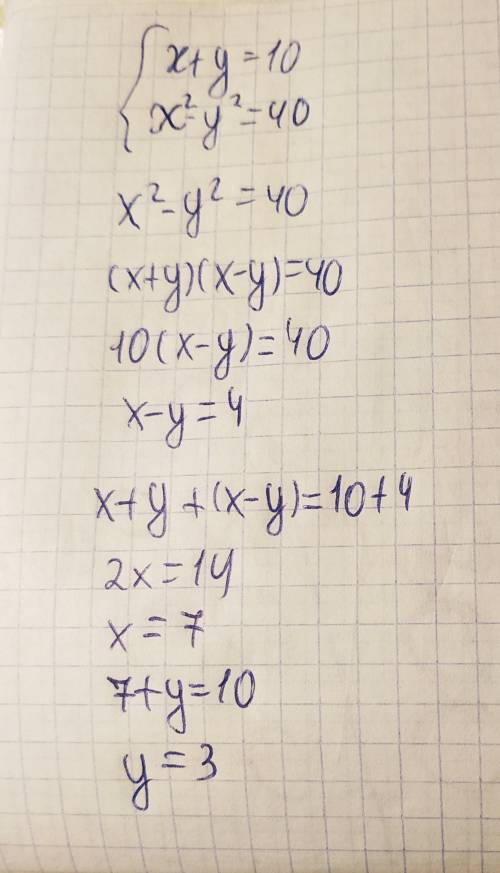 x+y=10
x²-y²=40
x²-y²=40
(x+y)(x-y)=40
10(x-y)=40
x-y=4
x+y+(x-y)=10+4
2x=14
x=7
7+y=10
y=3